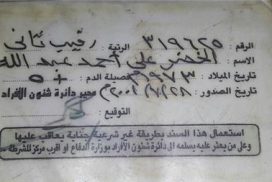 الرقم : ٣١٩٦٢٥ الرتبة : رقيب ثاني
الاسم : الخضر علي احمد عبد الله
تاريخ الميلاد : ١٩٧٣ فصيلة الدم : O+
تاريخ الصدور : مدير دائرة شئون الأفراد
التوقيع :
استعمال هذا السند بطريقة غير شرعية جناية يعاقب عليها
وعلى من يعثر عليه يسلمه الى دائرة شئون الأفراد بوزارة الدفاع او اقرب مركز للشرطة